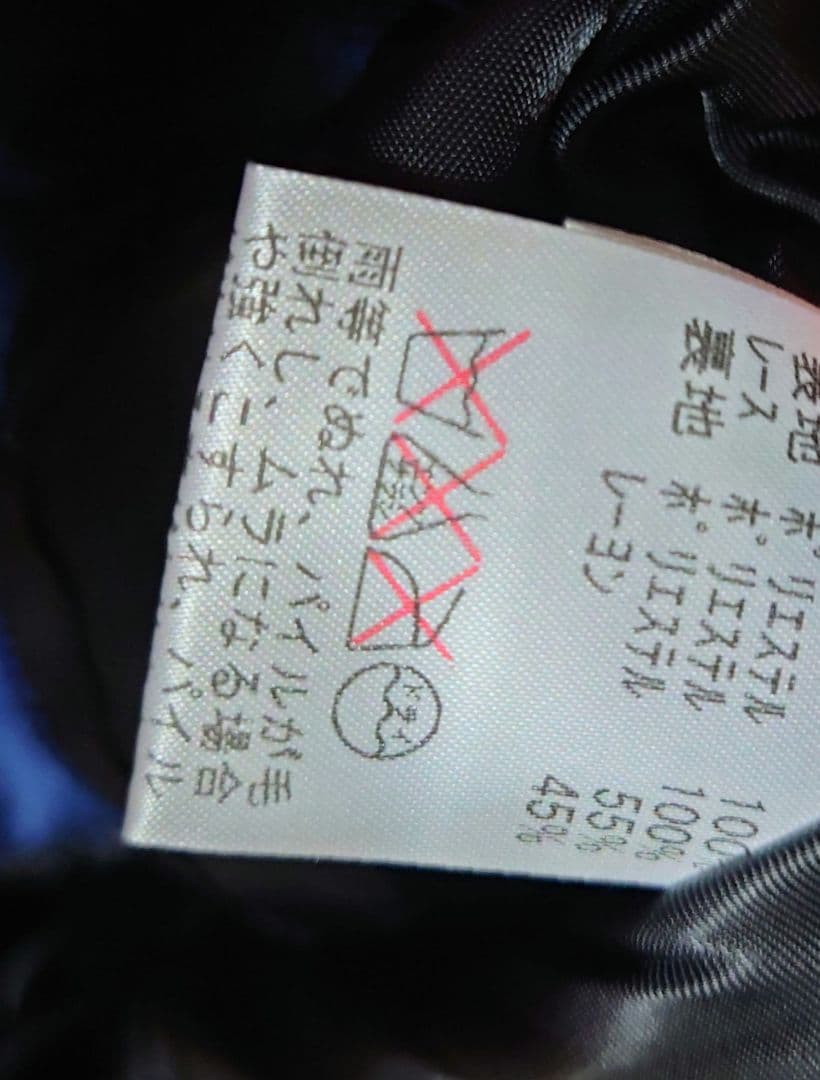 表地 ポリエステル 100%
レース ポリエステル 100%
裏地 ポリエステル 55%
レーヨン 45%
ドライ
雨等でぬれ、パイルが毛
倒れし、ムラになる場合
や強くこすられ、パイル